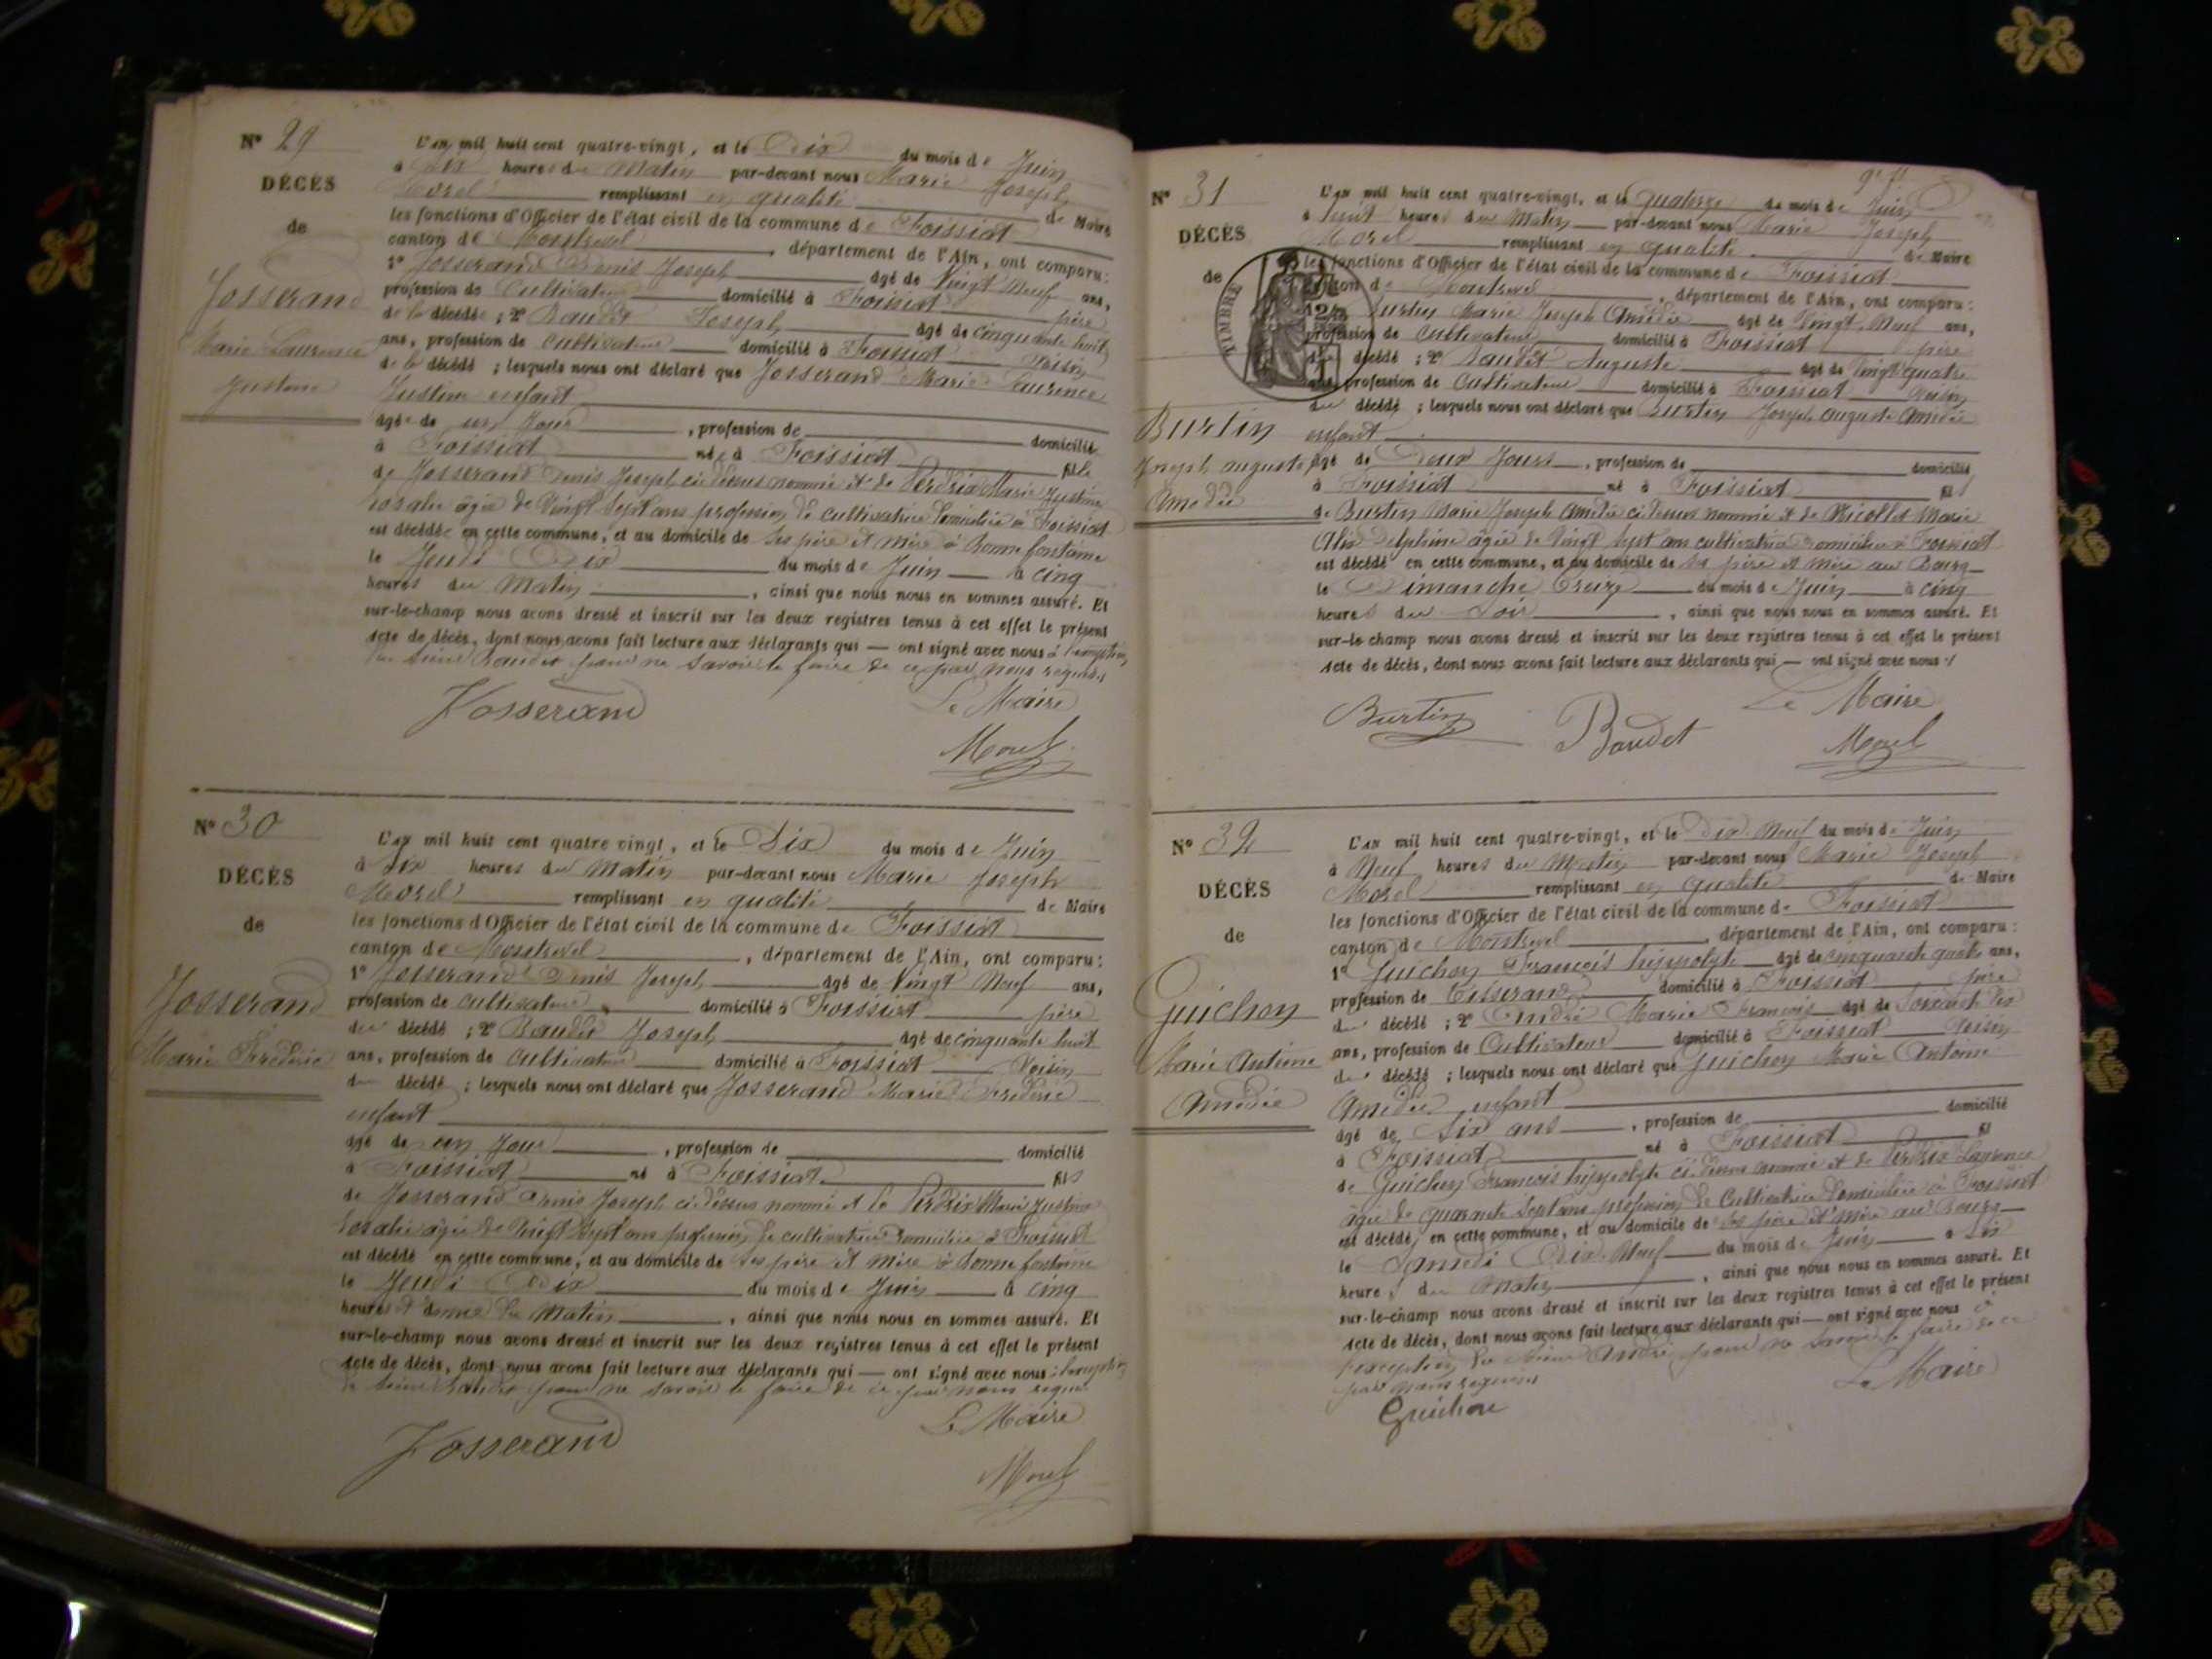 N° 29
DÉCÈS
de
Josserand
Marie Laurence
Justine
L'an mil huit cent quatre-vingt, et le Dix du mois de Juin
à Six heures du Matin par-devant nous Marie Joseph
Morel remplissant en qualité de Maire
les fonctions d'Officier de l'état civil de la commune de Foissiat
canton de Montrevel, département de l'Ain, ont comparu:
1° Josserand Denis Joseph âgé de Vingt Neuf ans,
profession de Cultivateur domicilié à Foissiat père
de la décédée ; 2° Baudet Joseph âgé de cinquante huit
ans, profession de cultivateur domicilié à Foissiat voisin
de la décédé ; lesquels nous ont déclaré que Josserand Marie Laurence
Justine enfant
âgée de un Jour, profession de domicilié
à Foissiat née à Foissiat fille
de Josserand Denis Joseph ci dessus nommé et de Perdrix Marie Justine
Rosalie âgée de Vingt Sept ans profession de cultivatrice domiciliée à Foissiat
est décédée en cette commune, et au domicile de ses père et mère à Bonne fontaine
le Jeudi Dix du mois de Juin à cinq
heures du Matin, ainsi que nous nous en sommes assuré. Et
sur-le-champ nous avons dressé et inscrit sur les deux registres tenus à cet effet le présent
acte de décès, dont nous avons fait lecture aux déclarants qui — ont signé avec nous à l'exception
du Sieur Baudet pour ne savoir le faire de ce par nous requis
Josserand
Le Maire
Morel
N° 30
DÉCÈS
de
Josserand
Marie Fréderic
L'an mil huit cent quatre vingt, et le Dix du mois de Juin
à Six heures du Matin par-devant nous Marie Joseph
Morel remplissant en qualité de Maire
les fonctions d'Officier de l'état civil de la commune de Foissiat
canton de Montrevel, département de l'Ain, ont comparu:
1° Josserand Denis Joseph âgé de Vingt Neuf ans,
profession de cultivateur domicilié à Foissiat père
du décédé ; 2° Baudet Joseph âgé de cinquante huit
ans, profession de Cultivateur domicilié à Foissiat Voisin
du décédé ; lesquels nous ont déclaré que Josserand Marie Fréderic
enfant
âgé de un Jour, profession de domicilié
à Foissiat né à Foissiat fils
de Josserand Denis Joseph ci dessus nommé et de Perdrix Marie Justine
Rosalie âgée de Vingt Sept ans profession de cultivatrice domiciliée à Foissiat
est décédé en cette commune, et au domicile de ses père et mère à Bonne fontaine
le Jeudi Dix du mois de Juin à cinq
heures et demie du Matin, ainsi que nous nous en sommes assuré. Et
sur-le-champ nous avons dressé et inscrit sur les deux registres tenus à cet effet le présent
acte de décès, dont nous avons fait lecture aux déclarants qui — ont signé avec nous à l'exception
du Sieur Baudet pour ne savoir le faire de ce par nous requis
Josserand
Le Maire
Morel
N° 31
DÉCÈS
de
TIMBRE
Burtin
Joseph auguste
Amédée
L'an mil huit cent quatre-vingt, et le quatorze du mois de Juin
à huit heures du Matin par-devant nous Marie Joseph
Morel remplissant en qualité de Maire
les fonctions d'Officier de l'état civil de la commune de Foissiat
canton de Montrevel, département de l'Ain, ont comparu:
1° Burtin Marie Joseph Amédée âgé de Vingt Neuf ans,
profession de cultivateur domicilié à Foissiat père
du décédé ; 2° Baudet Auguste âgé de Vingt quatre
ans profession de Cultivateur domicilié à Foissiat voisin
du décédé ; lesquels nous ont déclaré que Burtin Joseph auguste Amédée
enfant
âgé de Deux Jours, profession de domicilié
à Foissiat né à Foissiat fils
de Burtin Marie Joseph Amédée ci dessus nommé et de Nicollet Marie
Delphine âgée de Vingt Sept ans cultivatrice domiciliée à Foissiat
est décédé en cette commune, et au domicile de ses père et mère au Bourg
le Dimanche Treize du mois de Juin à cinq
heures du Soir, ainsi que nous nous en sommes assuré. Et
sur-le champ nous avons dressé et inscrit sur les deux registres tenus à cet effet le présent
acte de décès, dont nous avons fait lecture aux déclarants qui — ont signé avec nous
Burtin
Baudet
Le Maire
Morel
N° 32
DÉCÈS
de
Guichon
Marie Antoine
Amédée
L'an mil huit cent quatre-vingt, et le Dix Neuf du mois de Juin
à Neuf heures du Matin par-devant nous Marie Joseph
Morel remplissant en qualité de Maire
les fonctions d'Officier de l'état civil de la commune de Foissiat
canton de Montrevel, département de l'Ain, ont comparu:
1° Guichon François hippolyte âgé de cinquante quatre ans,
profession de Tisserand domicilié à Foissiat père
du décédé ; 2° André Marie François âgé de Soixante Dix
ans, profession de Cultivateur domicilié à Foissiat voisin
du décédé ; lesquels nous ont déclaré que Guichon Marie Antoine
Amédée enfant
âgé de Six ans, profession de domicilié
à Foissiat né à Foissiat fil
de Guichon François hippolyte ci dessus nommé et de Perdrix Laurence
âgée de quarante Sept ans profession de Cultivatrice domiciliée à Foissiat
est décédé en cette commune, et au domicile de ses père et mère au Bourg
le Samedi Dix Neuf du mois de Juin à Six
heures du Matin, ainsi que nous nous en sommes assuré. Et
sur-le-champ nous avons dressé et inscrit sur les deux registres tenus à cet effet le présent
acte de décès, dont nous avons fait lecture aux déclarants qui — ont signé avec nous à
l'exception du Sieur André pour ne savoir le faire de ce
par nous requis
Guichon
Le Maire